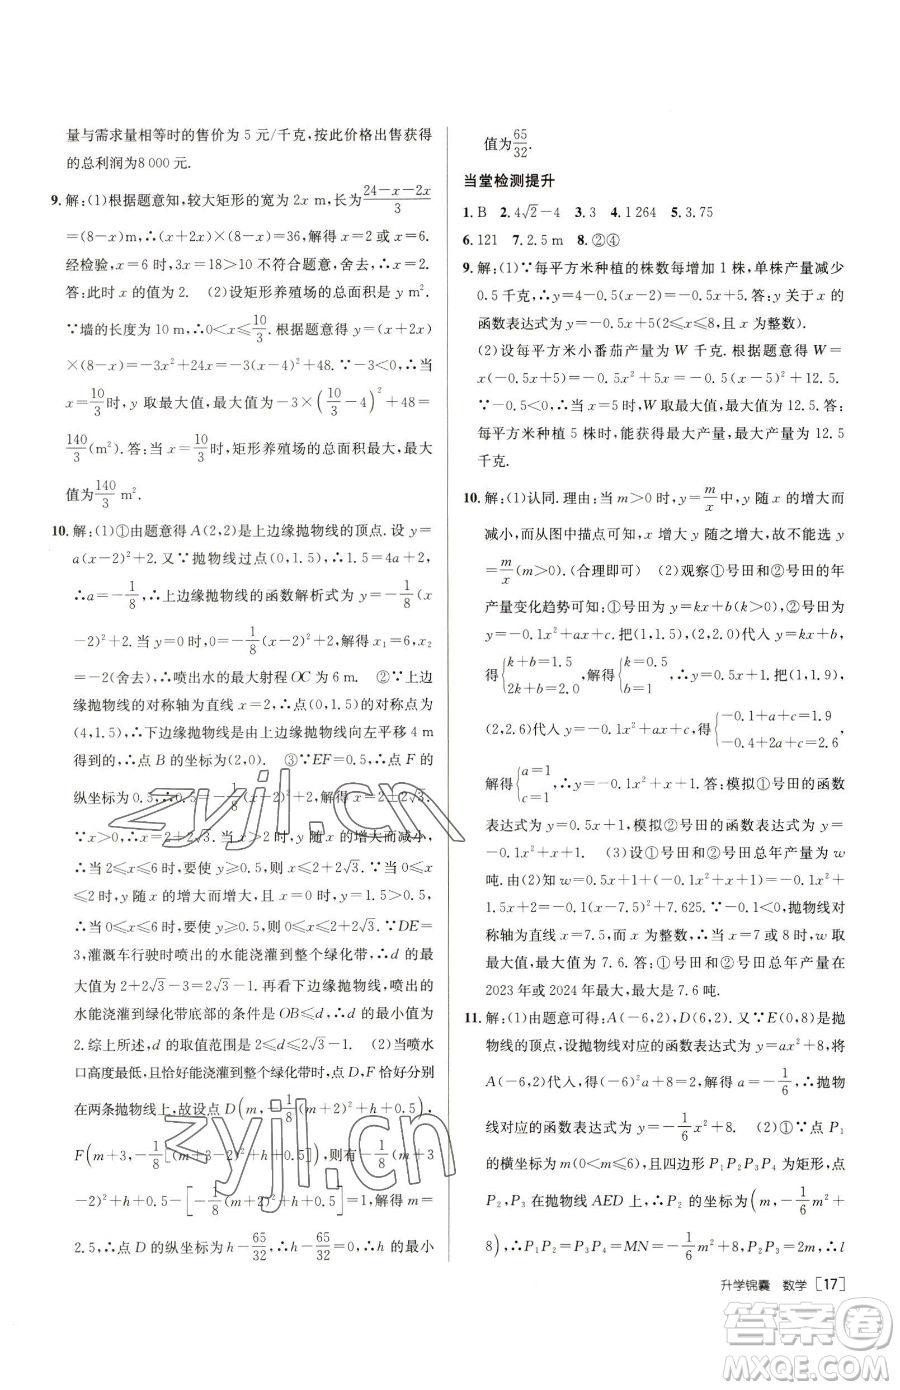 量与需求量相等时的售价为 5 元/千克,按此价格出售获得
的总利润为8 000 元.
9.解:(1)根据题意知,较大矩形的宽为 2x m,长为 (24-x-2x)/3
=(8-x)m,∴(x+2x)×(8-x)=36,解得 x=2 或 x=6.
经检验,x=6 时,3x=18>10 不符合题意,舍去,∴x=2.
答:此时 x 的值为 2. (2)设矩形养殖场的总面积是 y m².
∵墙的长度为 10 m,∴0<x≤10/3.根据题意,得 y=(x+2x)
×(8-x)=-3x²+24x=-3(x-4)²+48.∵-3<0,∴当
x=10/3时,y 取最大值,最大值为-3×(10/3-4)²+48=
140/3(m²).答:当 x=10/3时,矩形养殖场的总面积最大,最大
值为140/3 m².
10.解:(1)①由题意得 A(2,2)是上边缘抛物线的顶点.设 y=
a(x-2)²+2.又∵抛物线过点(0,1.5),∴1.5=4a+2,
∴a=-1/8,∴上边缘抛物线的函数解析式为 y=-1/8(x
-2)²+2.当 y=0 时,0=-1/8(x-2)²+2,解得 x₁=6,x₂
=-2(舍去),∴喷出水的最大射程 OC 为 6 m. ②∵上边
缘抛物线的对称轴为直线 x=2,∴点(0,1.5)的对称点为
(4,1.5),∴下边缘抛物线是由上边缘抛物线向左平移 4 m
得到的,∴点 B 的坐标为(2,0). ③∵EF=0.5,∴点 F 的
纵坐标为 0.5,∴0.5=-1/8(x-2)²+2,解得 x=2±2√3.
∵x>0,∴x=2+2√3.当 x>2 时,y 随 x 的增大而减小,
∴当 2≤x≤6 时,要使 y≥0.5,则 x≤2+2√3.∵当 0≤x
≤2 时,y 随 x 的增大而增大,且 x=0 时,y=1.5>0.5,
∴当 0≤x≤6 时,要使 y≥0.5,则 0≤x≤2+2√3.∵DE=
3,灌溉车行驶时喷出的水能浇灌到整个绿化带,∴d 的最
大值为 2+2√3-3=2√3-1.再看下边缘抛物线,喷出的
水能浇灌到绿化带底部的条件是 OB≤d,∴d 的最小值为
2.综上所述,d 的取值范围是 2≤d≤2√3-1. (2)当喷水
口高度最低,且恰好能浇灌到整个绿化带时,点 D,F 恰好分别
在两条抛物线上,故设点 D(m,-1/8(m+2)²+h+0.5),
F(m+3,-1/8[(m+3-2)²+h+0.5]),则有-1/8(m+3
-2)²+h+0.5-[-1/8(m+2)²+h+0.5]=1,解得 m=
2.5,∴点 D 的纵坐标为 h-65/32,∴h-65/32=0,∴h 的最小
值为65/32.
当堂检测提升
1.B 2.4√2-4 3.3 4.1 264 5.3.75
6.121 7.2.5 m 8.②④
9.解:(1)∵每平方米种植的株数每增加 1 株,单株产量减少
0.5 千克,∴y=4-0.5(x-2)=-0.5x+5.答:y 关于 x 的
函数表达式为 y=-0.5x+5(2≤x≤8,且 x 为整数).
(2)设每平方米小番茄产量为 W 千克.根据题意得 W=
x(-0.5x+5)=-0.5x²+5x=-0.5(x-5)²+12.5.
∵-0.5<0,∴当 x=5 时,W 取最大值,最大值为 12.5.答:
每平方米种植 5 株时,能获得最大产量,最大产量为 12.5
千克.
10.解:(1)认同.理由:当 m>0 时,y=m/x中,y 随 x 的增大而
减小,而从图中描点可知,x 增大 y 随之增大,故不能选 y
=m/x(m>0).(合理即可) (2)观察①号田和②号田的年
产量变化趋势可知:①号田为 y=kx+b(k>0),②号田为
y=-0.1x²+ax+c.把(1,1.5),(2,2.0)代入 y=kx+b,
得{k+b=1.5 2k+b=2.0,解得{k=0.5 b=1,∴y=0.5x+1.把(1,1.9),
(2,2.6)代入 y=-0.1x²+ax+c,得{-0.1+a+c=1.9 -0.4+2a+c=2.6,
解得{a=1 c=1,∴y=-0.1x²+x+1.答:模拟①号田的函数
表达式为 y=0.5x+1,模拟②号田的函数表达式为 y=
-0.1x²+x+1. (3)设①号田和②号田总年产量为 w
吨.由(2)知 w=0.5x+1+(-0.1x²+x+1)=-0.1x²+
1.5x+2=-0.1(x-7.5)²+7.625.∵-0.1<0,抛物线对
称轴为直线 x=7.5,而 x 为整数,∴当 x=7 或 8 时,w 取
最大值,最大值为 7.6. 答:①号田和②号田总年产量在
2023 年或 2024 年最大,最大是 7.6 吨.
11.解:(1)由题意可得:A(-6,2),D(6,2).又∵E(0,8)是抛
物线的顶点,设抛物线对应的函数表达式为 y=ax²+8,将
A(-6,2)代入,得(-6)²a+8=2,解得 a=-1/6,∴抛物
线对应的函数表达式为 y=-1/6x²+8. (2)①∵点 P₁
的横坐标为 m(0<m≤6),且四边形 P₁P₂P₃P₄ 为矩形,
P₂,P₃ 在抛物线 AED 上,∴P₂ 的坐标为(m,-1/6m²+
8),∴P₁P₂=P₃P₄=MN=-1/6m²+8,P₂P₃=2m,∴l
升学锦囊 数学 [17]
zyjl.cn
zyjl.cn
答案圈
MXQE.COM